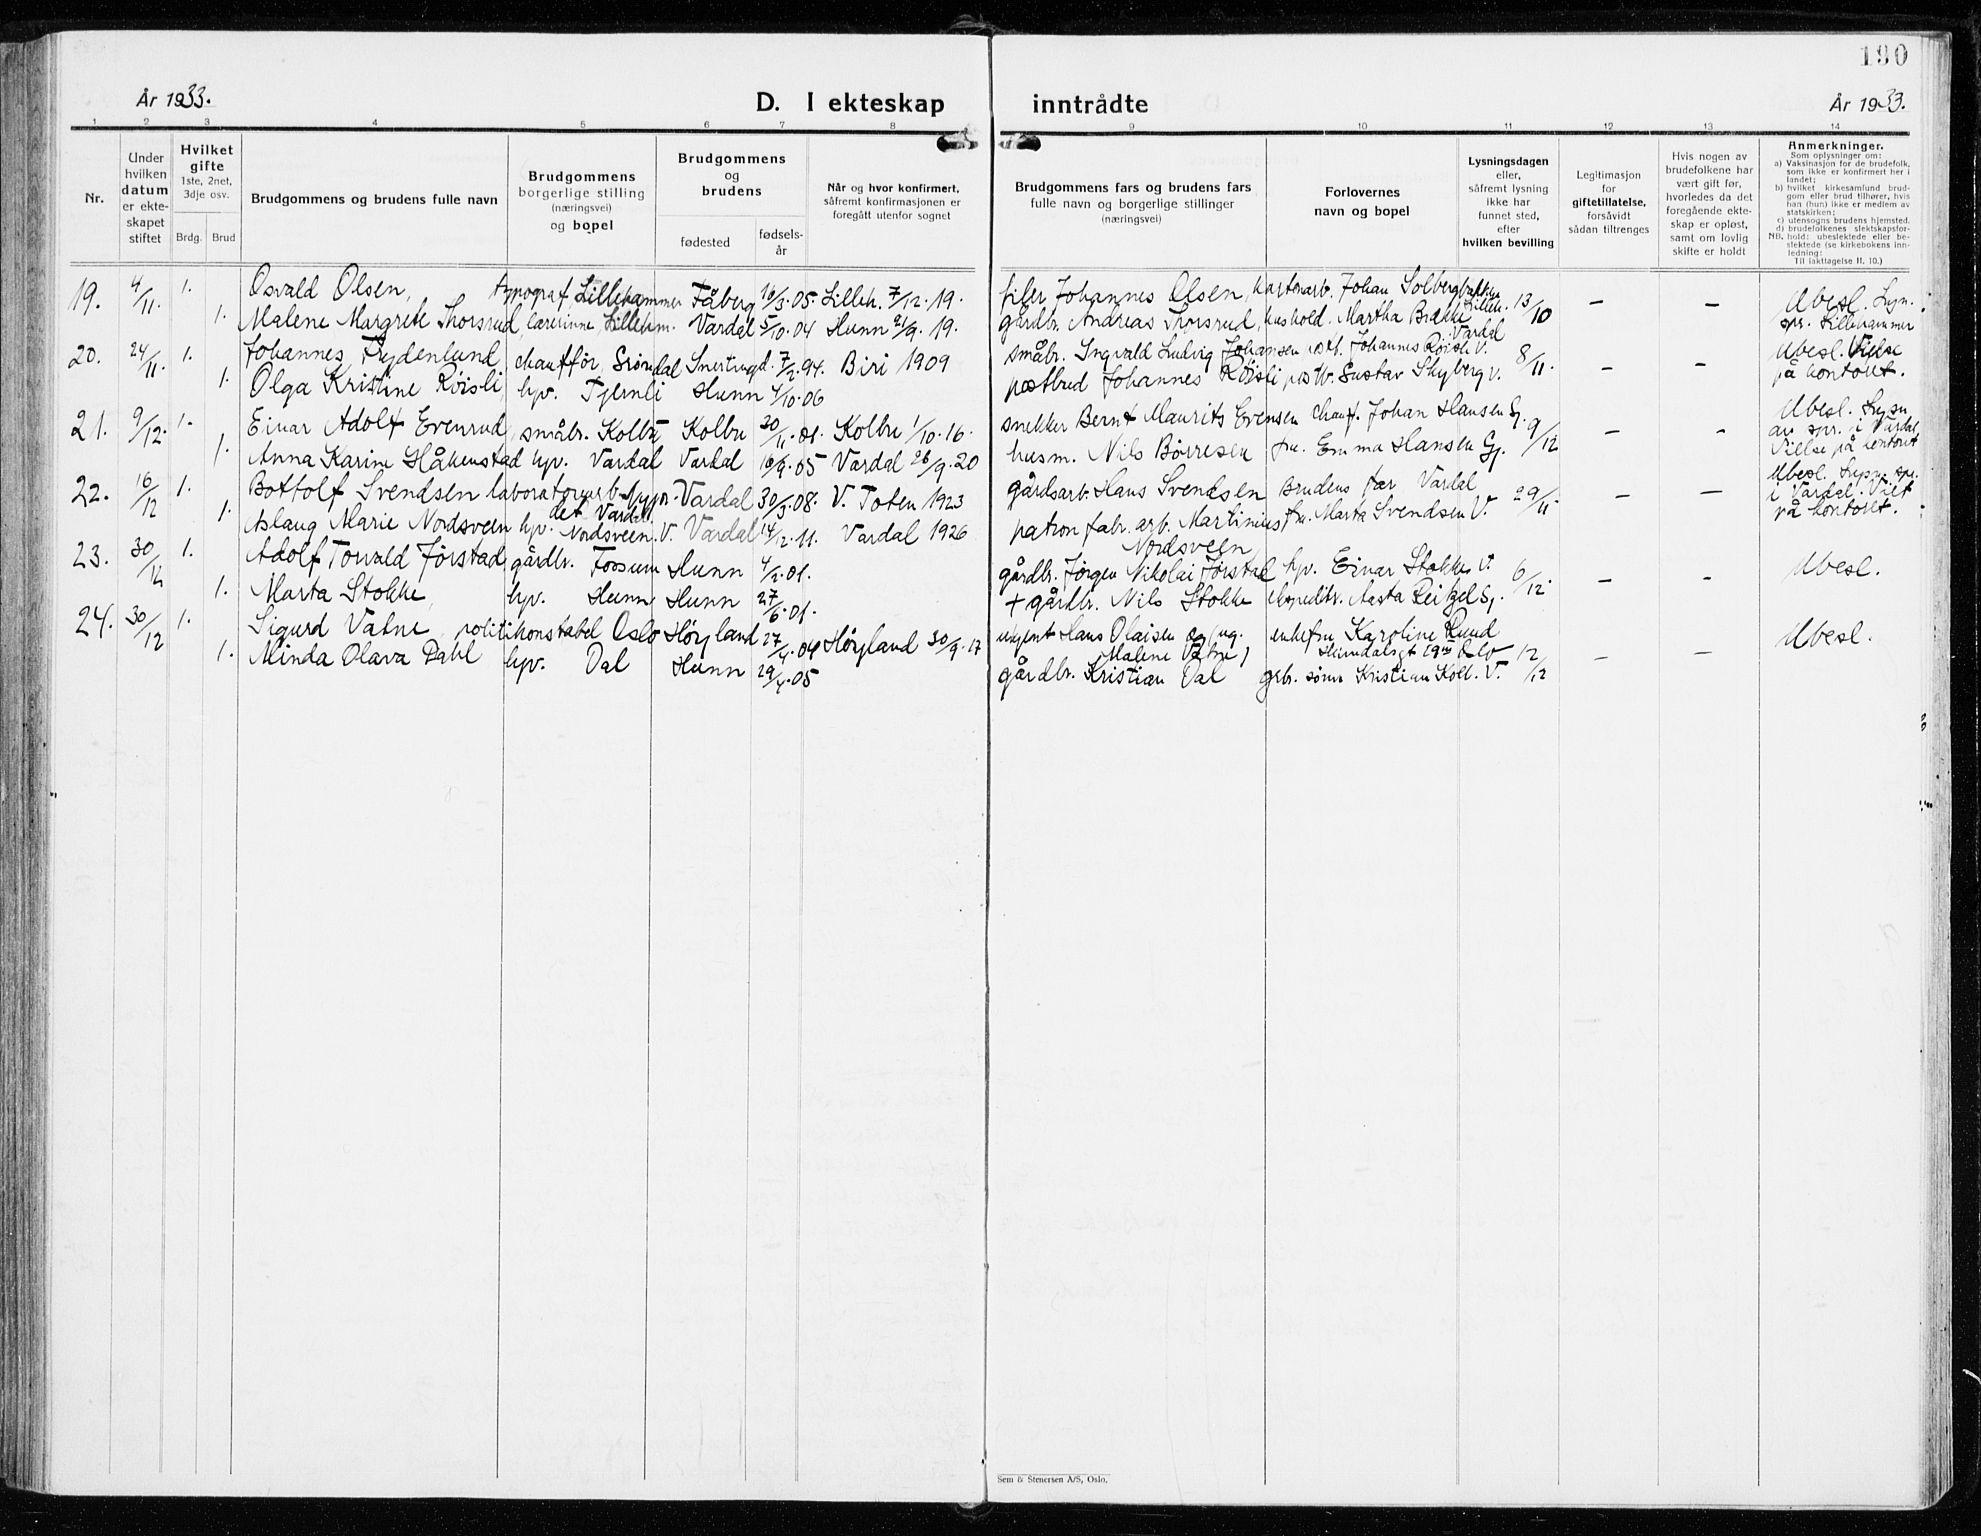 190
År 1933.
D. I ekteskap inntrådte
År 1933.
1 2 3 4 5 6 7 8 9 10 11 12 13 14
Nr.
Under hvilken datum er ekteskapet stiftet
Hvilket gifte
1ste, 2net, 3dje osv.
Brdg. Brud
Brudgommens og brudens fulle navn
Brudgommens borgerlige stilling (næringsvei) og bopel
Brudgommens og brudens
fødested
fødselsår
Når og hvor konfirmert, såfremt konfirmasjonen er foregått utenfor sognet
Brudgommens fars og brudens fars fulle navn og borgerlige stillinger (næringsvei)
Forlovernes navn og bopel
Lysningsdagen eller, såfremt lysning ikke har funnet sted, efter hvilken bevilling
Legitimasjon for giftetillatelse, forsåvidt sådan tiltrenges
Hvis nogen av brudefolkene har vært gift før, hvorledes da det foregående ekteskap er opløst, samt om lovlig skifte er holdt
Anmerkninger.
Som oplysninger om:
a) Vaksinasjon for de brudefolk, som ikke er konfirmert her i landet;
b) hvilket kirkesamfund brudgom eller brud tilhører, hvis han (hun) ikke er medlem av statskirken;
c) utensogns brudens hjemsted.
d) brudefolkenes slektskapsforhold: ubeslektede eller beslektede (se kirkebokens innledning:
NB.
Til iakttagelse II. 10.)
19. 4/11. 1. Osvald Olsen, typograf, Lillehammer Fåberg 16/3.05 Lilleh. 7/12.19. filer Johannes Olsen, kartonarb. Johan Solbergbakken Lilleh. 13/10 — — Ubesl. Lysn. spr. Lillehammer
1. Malene Margrete Thorsrud, lærerinne, Lilleham. Vardal 5/10.04 Hunn 21/9.19. gårdbr. Andreas Thorsrud, hushold. Martha Brække Vardal
20. 24/11. 1. Johannes Frydenlund chauffør, Snertingd. 7/2.94. Biri 1909 småbr. Ingvald Ludvig Johansen postb. Johannes Røisli V. 8/11. — — Ubesl. Vielse på kontoret.
1. Olga Kristine Røisli, hp. Tjernli Hunn 4/10.06 postbud Johannes Røisli Gustav Skyberg V.
21. 9/12. 1. Einar Adolf Evenrud, småbr. Kolbu Kolbu 30/11.01. Kolbu 1/10.16. snekker Bernt Maurits Evensen chauf. Johan Hansen Gj. 9/12 — — Ubesl. Lysn. av spr. i Vardal Vielse på kontoret
1. Anna Karine Håkenstad hp. Vardal Vardal 16/9.05 Vardal 26/9.20 husm. Nils Børresen fru Emma Hansen Gj.
22. 16/12 1. Bottolf Svendsen laboratoriearb. Vardal 30/3.08. V. Toten 1923 gårdsarb. Hans Svendsen Brudens far Vardal 29/11. — — Ubesl. Lysn. spr. i Vardal. Viet på kontoret.
det Vardal
1. Aslaug Marie Nordsveen hp. Nordsveen. V. Vardal 14/12.11. Vardal 1926 patron fabr. arb. Martinius Nordsveen fru. Marta Svendsen V.
23. 30/12 1. Adolf Torvald Førstad gårdbr. Fossum Hunn 4/2.01. gårdbr. Jørgen Nikolai Førstad hp. Einar Stokke V. 6/12. — — Ubesl.
1. Marta Stokke, hp. Hunn Hunn 27/6.01. + gårdbr. Nils Stokke ekspeditr. Aasta Gj.
24. 30/12 1. Sigurd Vatne, politikonstabel Oslo Høyland 27/4.04 Høyland 30/9.17 ugint Hans Olaisen og (ug. Malene Vatne) enkefru Karoline Lund Oslo 12/12 — — Ubesl.
1. Minda Olava Dahl hp. Dal Hunn 29/4.05 gårdbr. Kristian Dal grbr. sønn Kristian Koll. V.
Sem & Stenersen A/S, Oslo.